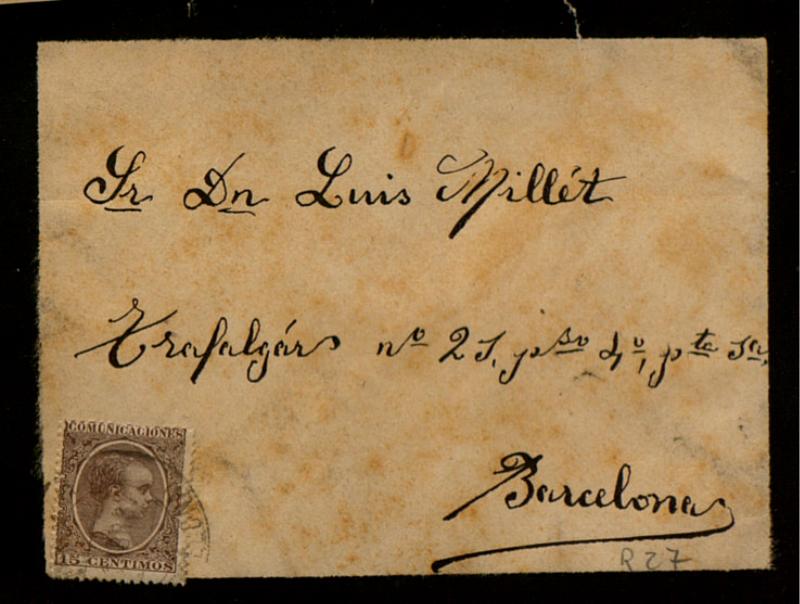 Sr Dn Luis Millét
Trafalgár nº 21, pso 4º, pta 1ª,
Barcelona
COMUNICACIONES
15 CENTIMOS
R 27